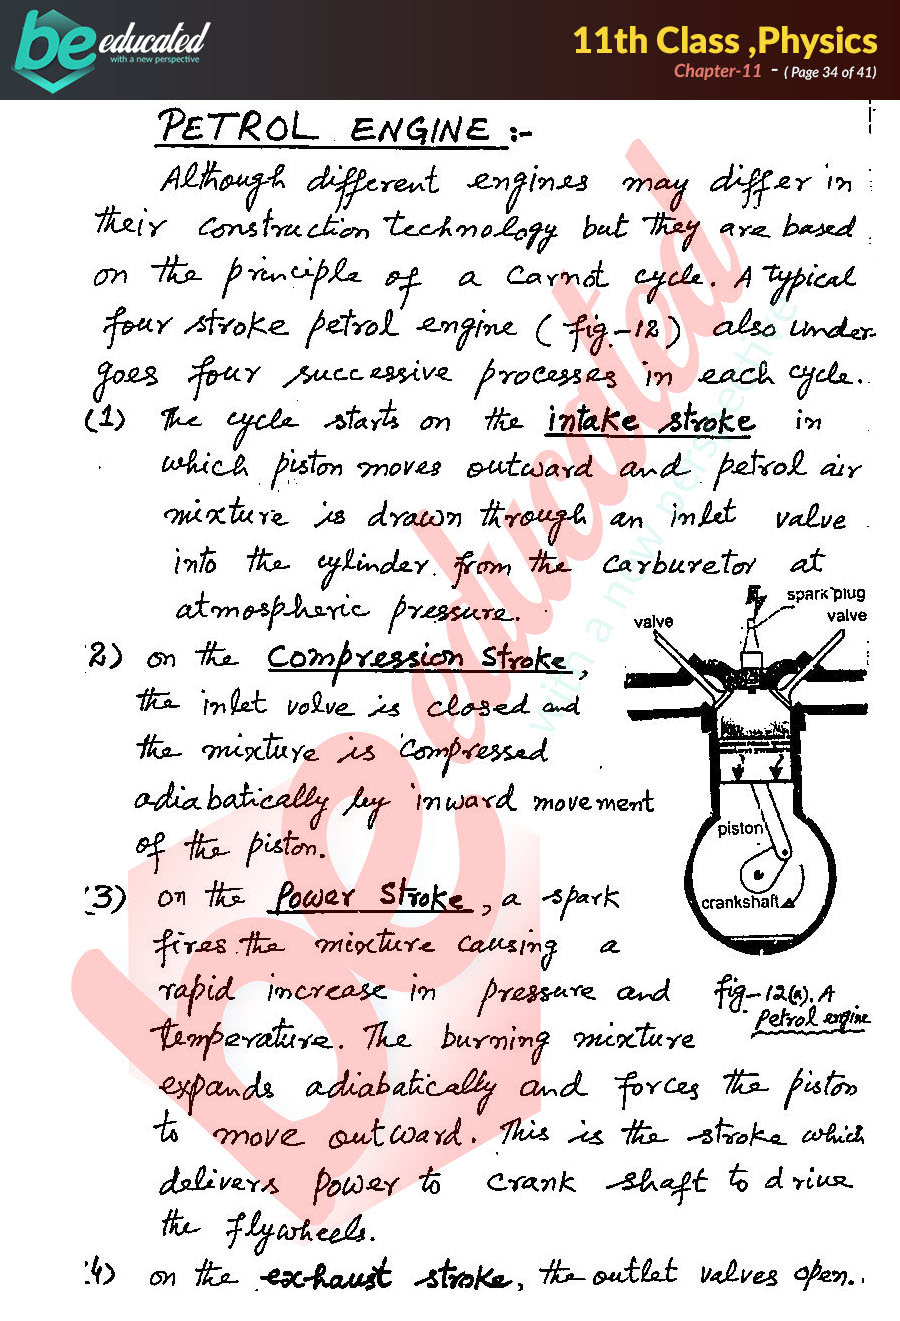 be educated
with a new perspective
11th Class ,Physics
Chapter-11 - ( Page 34 of 41)
PETROL ENGINE :-
Although different engines may differ in
their construction technology but they are based
on the principle of a Carnot cycle. A typical
four stroke petrol engine ( fig.-12) also under-
goes four successive processes in each cycle.
(1) The cycle starts on the intake stroke in
which piston moves outward and petrol air
mixture is drawn through an inlet valve
into the cylinder from the carburetor at
atmospheric pressure.
spark plug
valve
valve
2) on the Compression Stroke,
the inlet volve is closed and
the mixture is compressed
adiabatically by inward movement
of the piston.
piston
crankshaft
3) on the Power Stroke, a spark
fires the mixture causing a
rapid increase in pressure and
fig-12(a). A
Petrol engine
temperature. The burning mixture
expands adiabatically and forces the piston
to move outward. This is the stroke which
delivers power to crank shaft to drive
the flywheels.
4) on the exhaust stroke, the outlet valves open.
be educated
with a new perspective